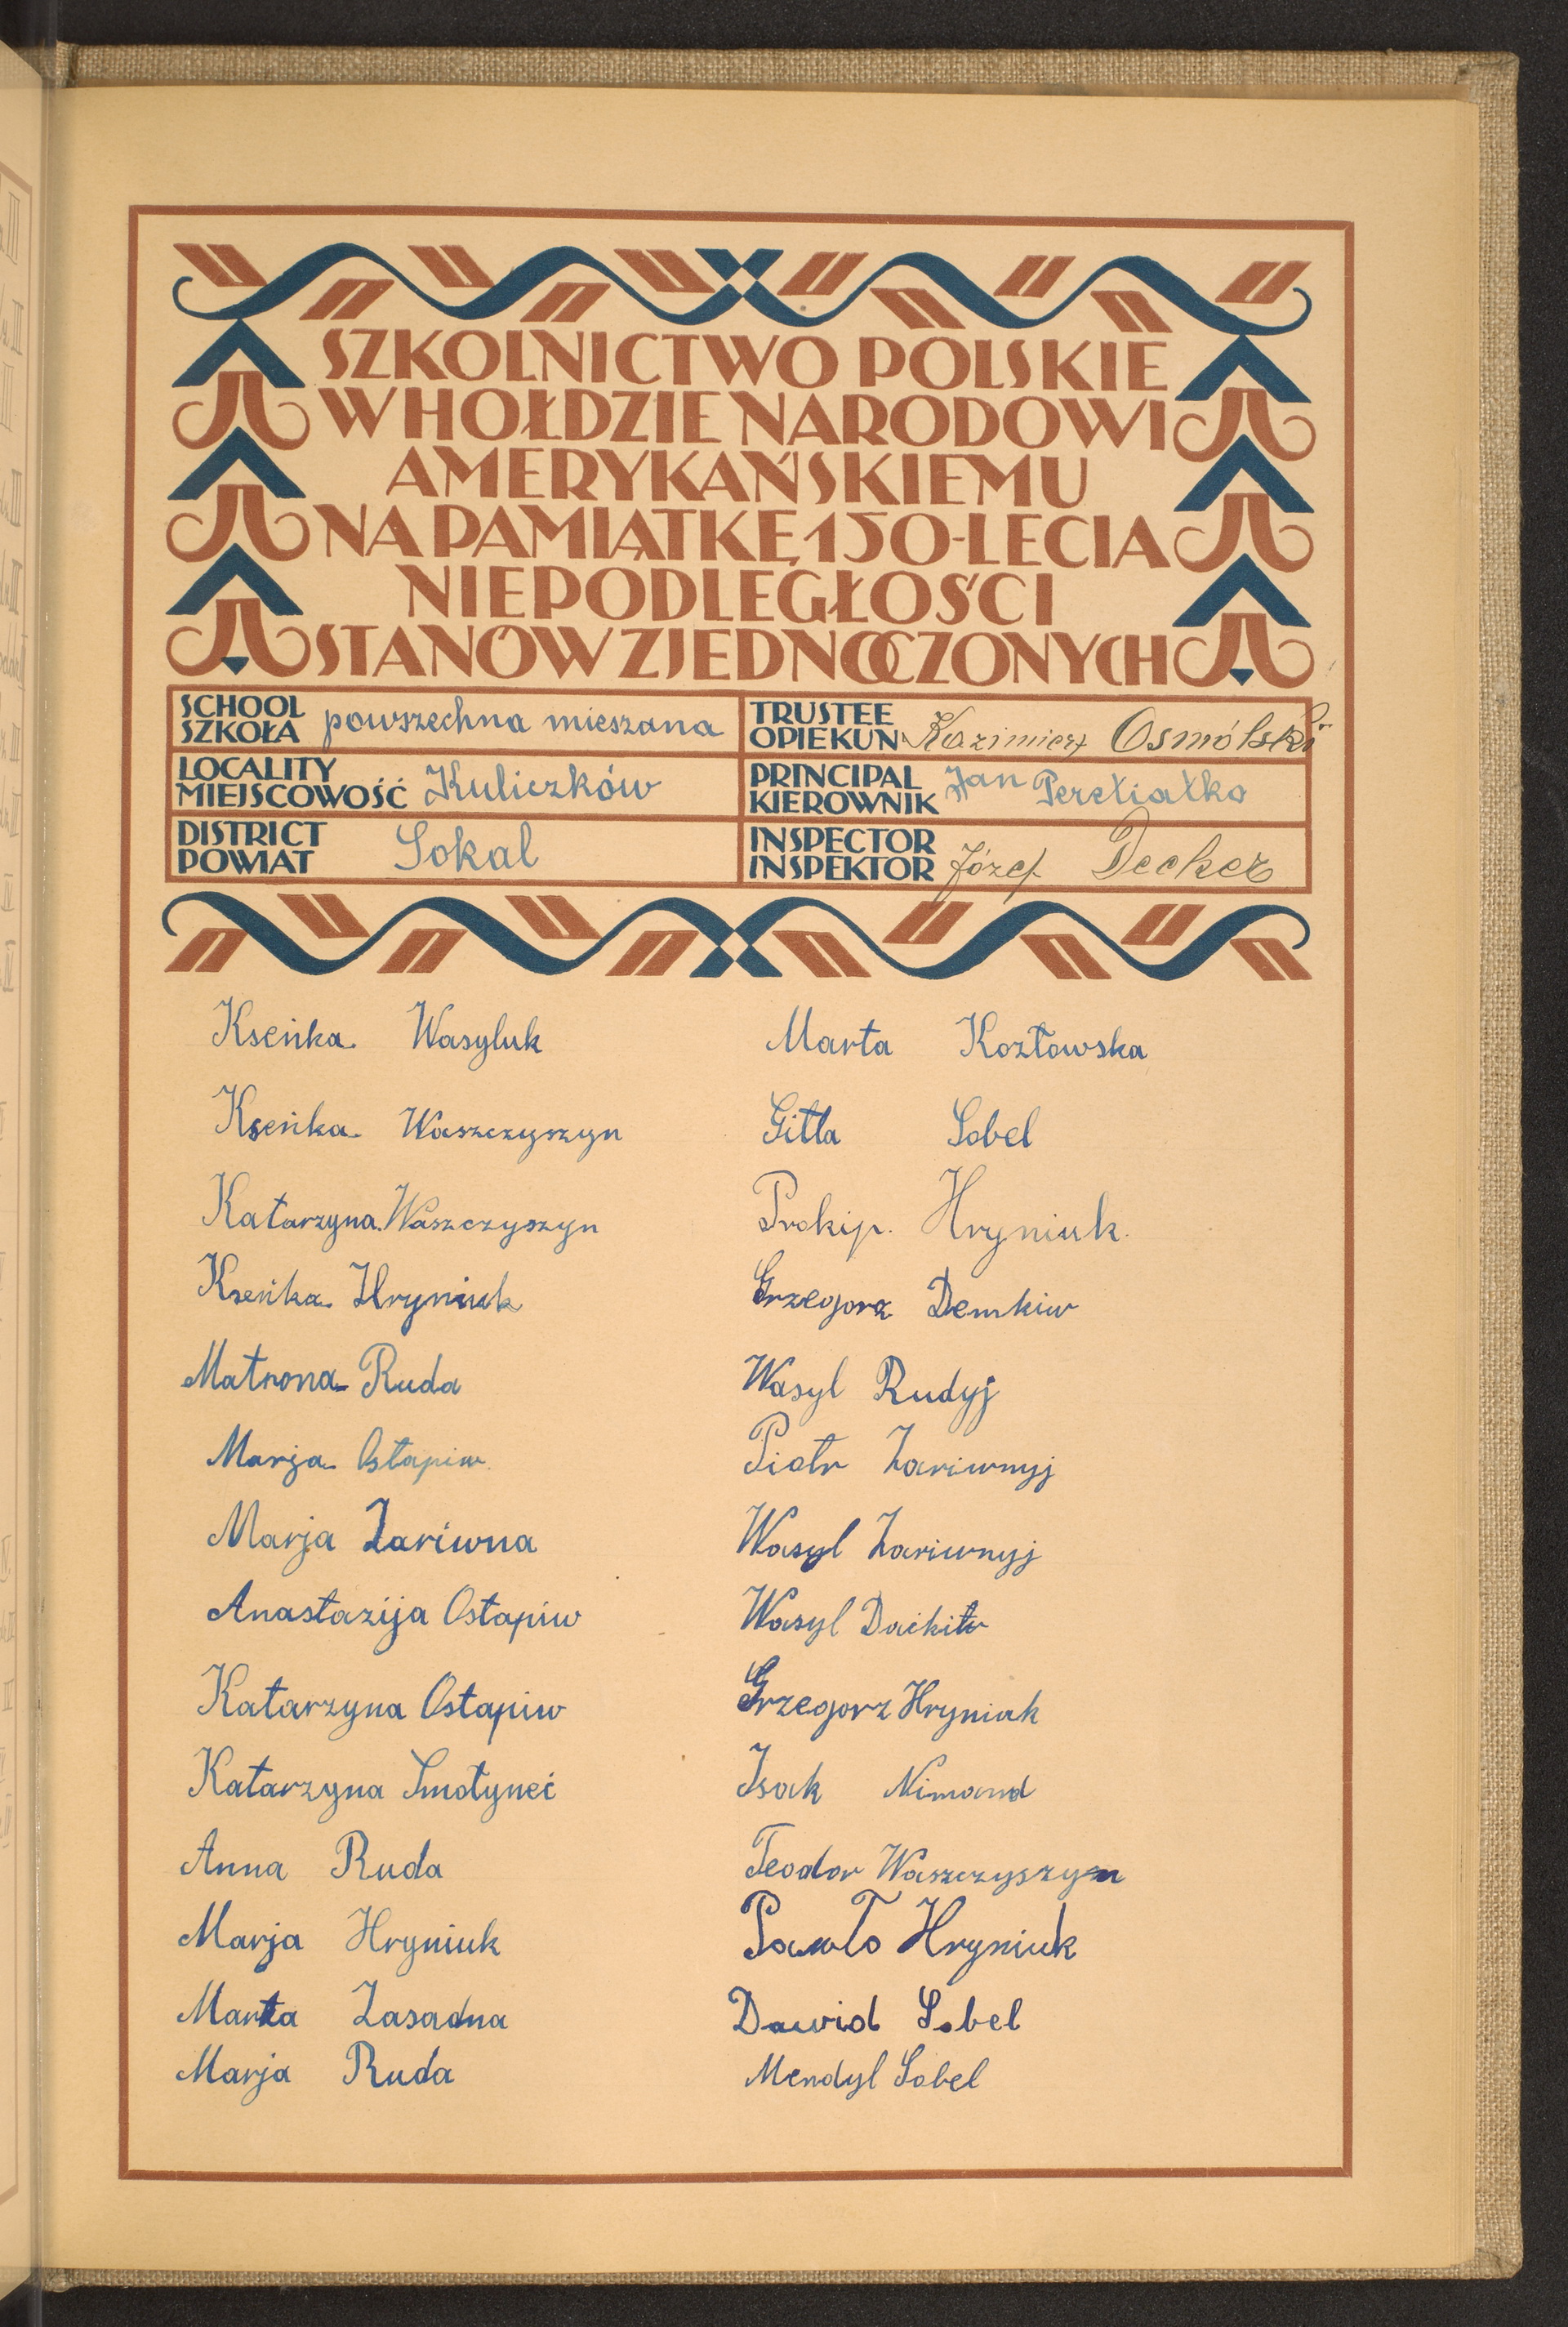 SZKOLNICTWO POLSKIE
W HOŁDZIE NARODOWI
AMERYKAŃSKIEMU
NA PAMIĄTKĘ 150-LECIA
NIEPODLEGŁOŚCI
STANÓW ZJEDNOCZONYCH
SCHOOL
SZKOŁA powszechna mieszana
TRUSTEE
OPIEKUN Kazimierz Osmólski
LOCALITY
MIEJSCOWOŚĆ Kuliczków
PRINCIPAL
KIEROWNIK Jan Peretiatko
DISTRICT
POWIAT Sokal
INSPECTOR
INSPEKTOR Józef Decker
Kseńka Wasyluk
Kseńka Waszczyszyn
Katarzyna Waszczyszyn
Kseńka Hryniuk
Matrona Ruda
Marja Ostapiw
Marja Zariwna
Anastazija Ostapiw
Katarzyna Ostapiw
Katarzyna Smotyneć
Anna Ruda
Marja Hryniuk
Marta Zasadna
Marja Ruda
Marta Kozłowska
Gitla Sobel
Prokip Hryniuk
Grzegorz Demkiw
Wasyl Rudyj
Piotr Zariwnyj
Wasyl Zariwnyj
Wasyl
Grzegorz Hryniak
Isak Nimand
Teodor Waszczyszyn
Pawło Hryniuk
Dawid Sobel
Mendyl Sobel